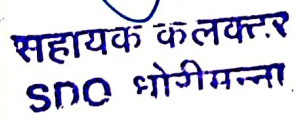 सहायक कलक्टर
SDO धोरीमन्ना